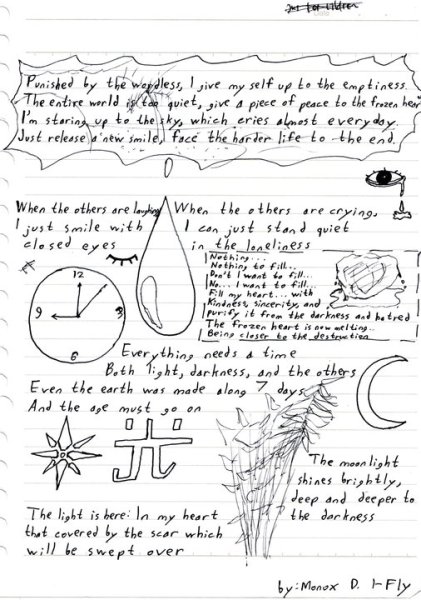 Just for children
Punished by the wordless, I give my self up to the emptiness.
The entire world is too quiet, give a piece of peace to the frozen heart
I'm staring up to the sky, which cries almost everyday.
Just release a new smile, face the harder life to the end.
When the others are laughing
I just smile with
closed eyes
When the others are crying,
I can just stand quiet
in the loneliness
Nothing...
Nothing to fill...
Don't I want to fill...
No... I want to fill...
Fill my heart... with
Kindness, sincerity, and
purify it from the darkness and hatred
The frozen heart is now melting..
Being closer to the destruction
12
3
6
9
Everything needs a time
Both light, darkness, and the others
Even the earth was made along 7 days
And the age must go on
光
The moonlight
shines brightly,
deep and deeper to
the darkness
The light is here: In my heart
that covered by the scar which
will be swept over
by: Monox D. I-Fly